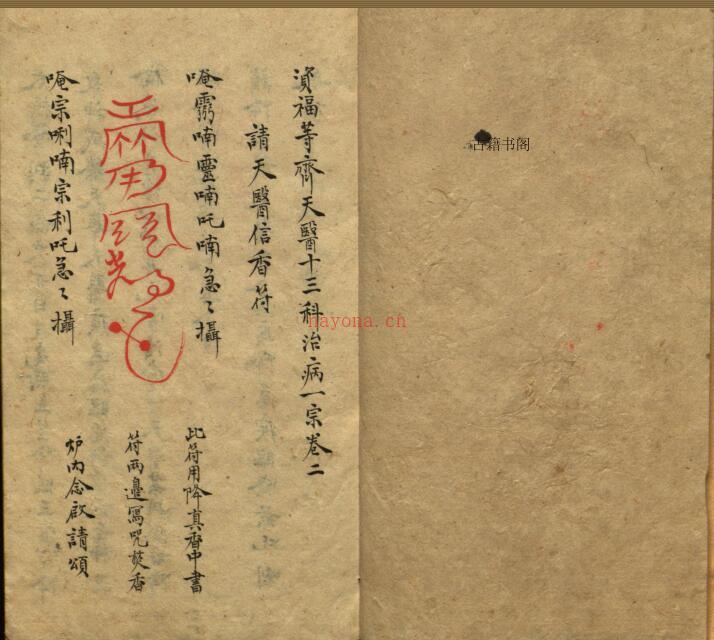 資福等齊天醫十三科治病一宗卷二
請天醫信香符
唵靈喃吒喃急〻攝
此符用降真香中書
符兩邊寫咒焚香
唵宗唎喃宗利吒急〻攝
炉内念啟請頌
古籍书阁
nayona.cn